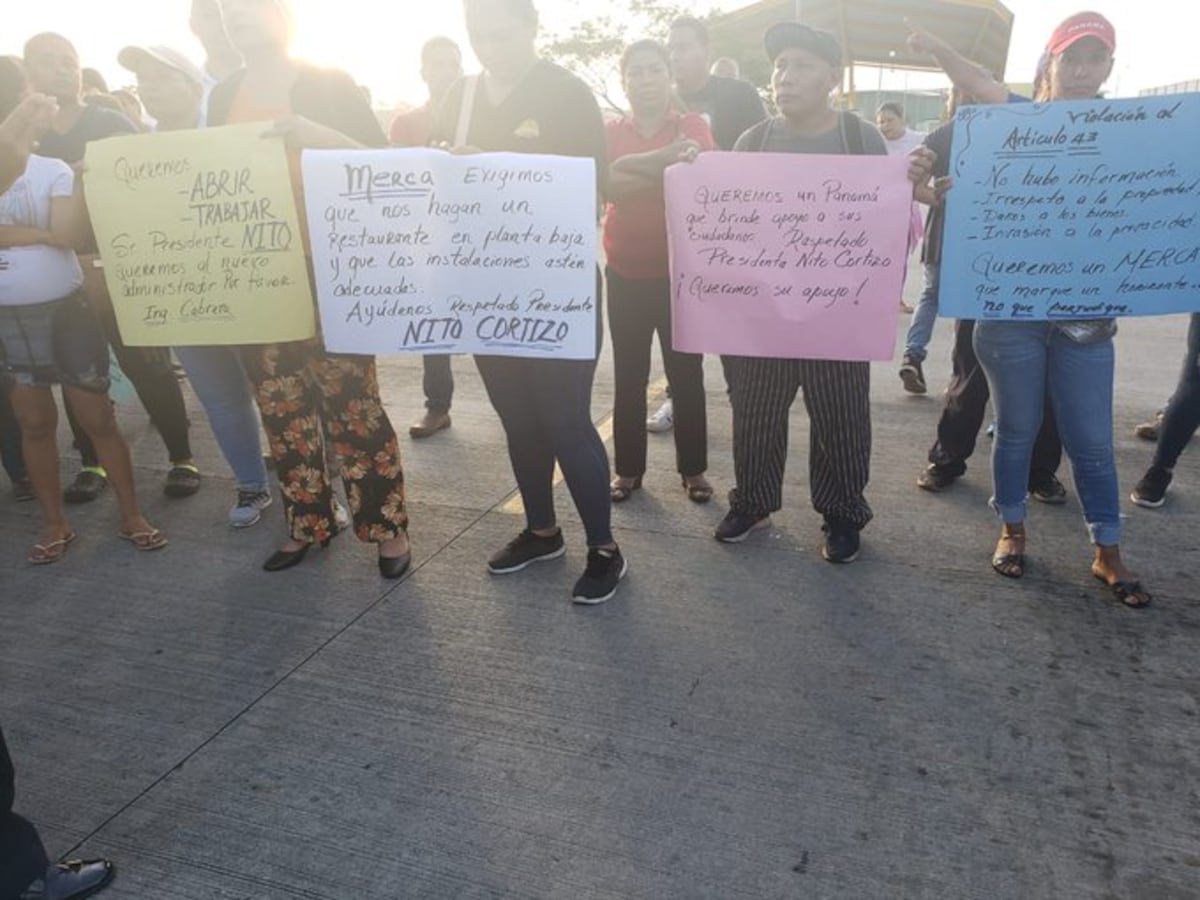 Queremos
- ABRIR
- TRABAJAR
Sr Presidente NITO
queremos al nuevo
administrador Por favor.
Ing. Cabrera
Merca Exigimos
que nos hagan un
Restaurante en planta baja
y que las instalaciones astén
adecuadas.
Ayúdenos Respetado Presidente
NITO CORTIZO
QUEREMOS un Panamá
que brinde apoyo a sus
ciudadanos. Raspetado
Presidente Nito Cortizo
¡Queremos su apoyo!
Violación al
Artículo 43
- No hubo información
- Irrespeto a la propiedad
- Daños a los bienes.
- Invasión a la privacidad
Queremos un MERCA
que marque un
no que perjudique.
PANAMA